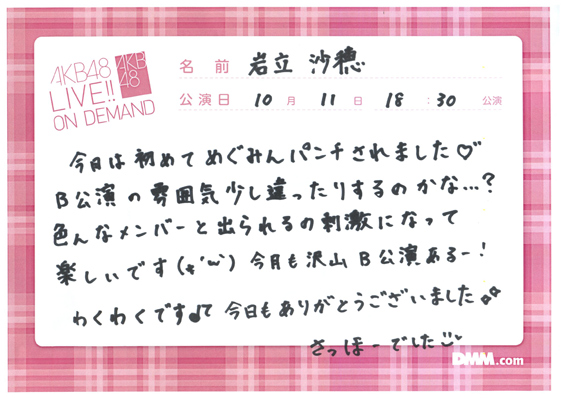 AKB48
LIVE!!
ON DEMAND
AKB
48
名 前 岩立 沙穂
公演日 10 月 11 日 18 : 30 公演
今日は初めてめぐみんパンチされました♡
B公演の雰囲気少し違ったりするのかな…?
色んなメンバーと出られるの刺激になって
楽しいです(*'ω'*) 今月も沢山B公演あるー!
わくわくです♪て 今日もありがとうございました
さっほーでした
DMM.com